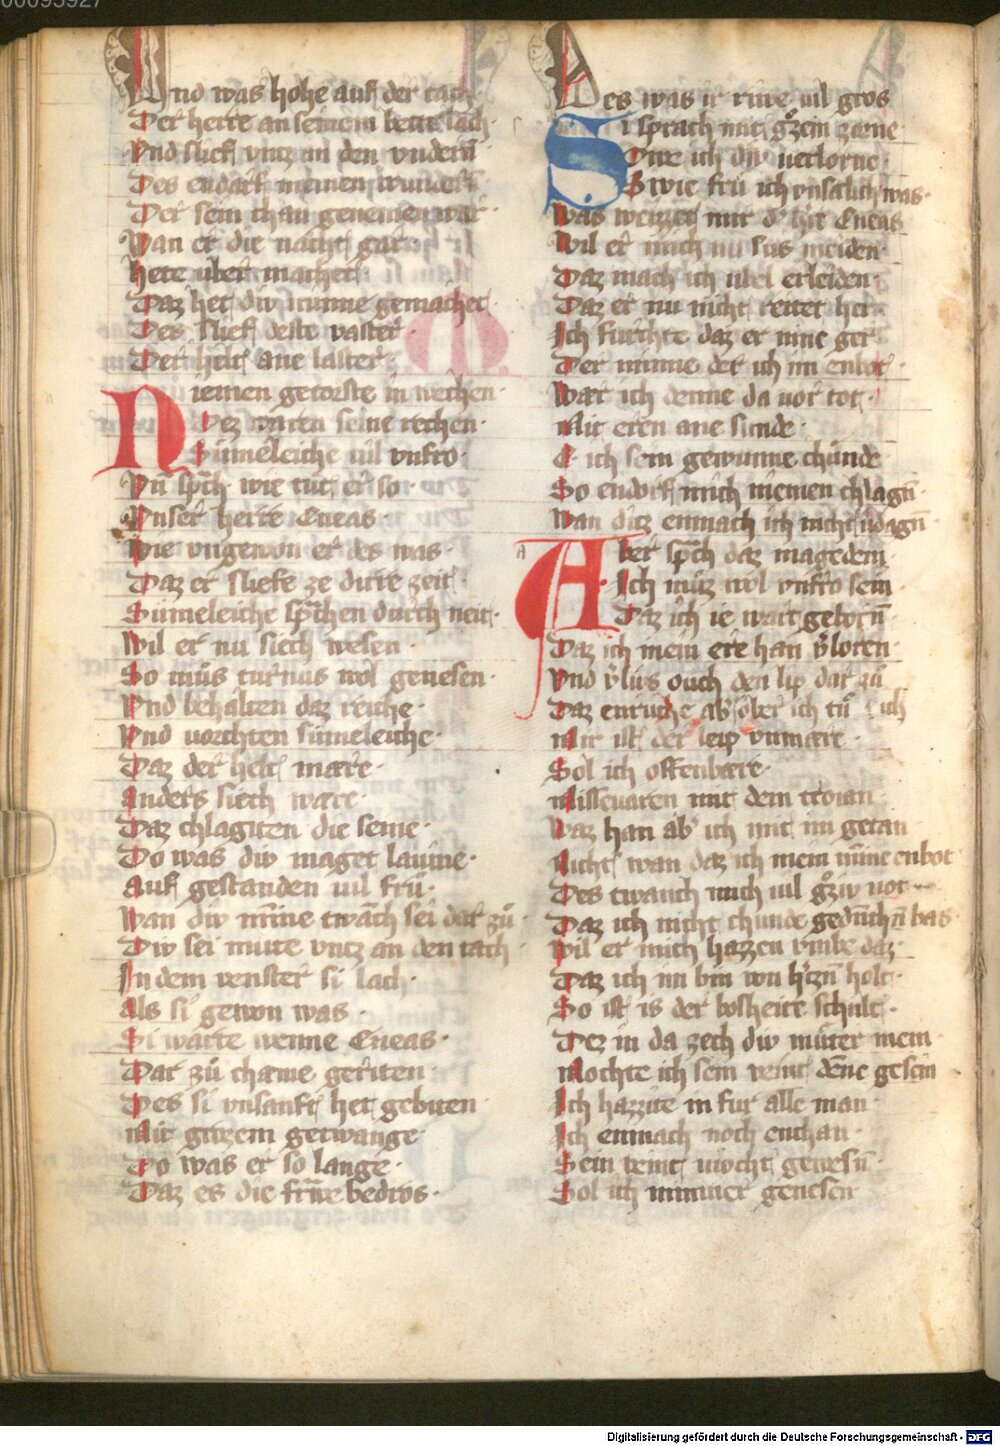 00095927
Vnd was hohe auf der tach
Der herre an seinem bette lach
Vnd slief vntz an den vndern
Des endarf niemen wundern
Der sein chan genemen war
Wan er die nacht gar
Hete uber wachet
Daz het div minne gemachet
Des slief deste vaster
Der helt ane laster
Niemen getorste in wechen
Dez waren seine rechen
Sumeleiche uil vnfro
Vn̄ sp̄ch wie tut er so
Vnser herre Eneas
Wie vngewon er des was
Daz er sliefe ze dirre zeit
Sumeleiche sp̄chen durch neit
Wil er nu siech wesen
So mus turnus wol genesen
Vnd behalten daz reiche
Vnd vorchten sumeleiche
Daz der helt mære
Anders siech ware
Daz chlagiten die seine
Do was div maget lauine
Auf gestanden uil frů
Wan div mīne twāch sei dar zů
Div sei mute vntz an den tach
In dem venster si lach
Als si gewon was
Si warte wenne Eneas
Dar zů chame geriten
Des si vnsanft het gebiten
Mit grozem getwange
Do was er so lange
Daz es die frōwe bedros
Des was ir riwe uil gros
Si sprach mit gͦzem zorne
Owe ich div uerlorne
Swie fru ich vnsalich was
Was weizzet mir d' h're Eneas
Wil er mich nu sus meiden
Daz mach ich ubel erleiden
Daz er nu nicht reitet her
Ich furchte daz er nine ger
Der minne der ich im enbot
War ich denne da uor tot
Mit eren ane sunde
E ich sein gewunne chunde
So endorf mich niemen chlagn̄
Wan ditz enmach ich nicht v'dagn̄
Aber sp̄ch daz magedein
Ich můz wol vnfro sein
Daz ich ie wart geborn̄
Daz ich mein ere han v'loren
Vnd v'livs ouch den lip dar zů
Daz enruche ab' ober ich tů
Mir ist der leip vnmære
Sol ich offenbære
Misseuaren mit dem troian
Waz han ab' ich mit im getan
Nicht wan daz ich mein mīne enbot
Des twanch mich uil gͦziv not
Daz ich nicht chunde gedēnchn̄ bas
Wil er mich hazzen vmbe daz
Daz ich im bin von h'tzn̄ holt
So ist is der bosheite schult
Dez in da zech div můter mein
Mochte ich sein veint dēne gesein
Ich hazzite in fur alle man
Ich enmach noch enchan
Sein veint nicht gewesn̄
Sol ich nimmer genesen
Digitalisierung gefördert durch die Deutsche Forschungsgemeinschaft - DFG